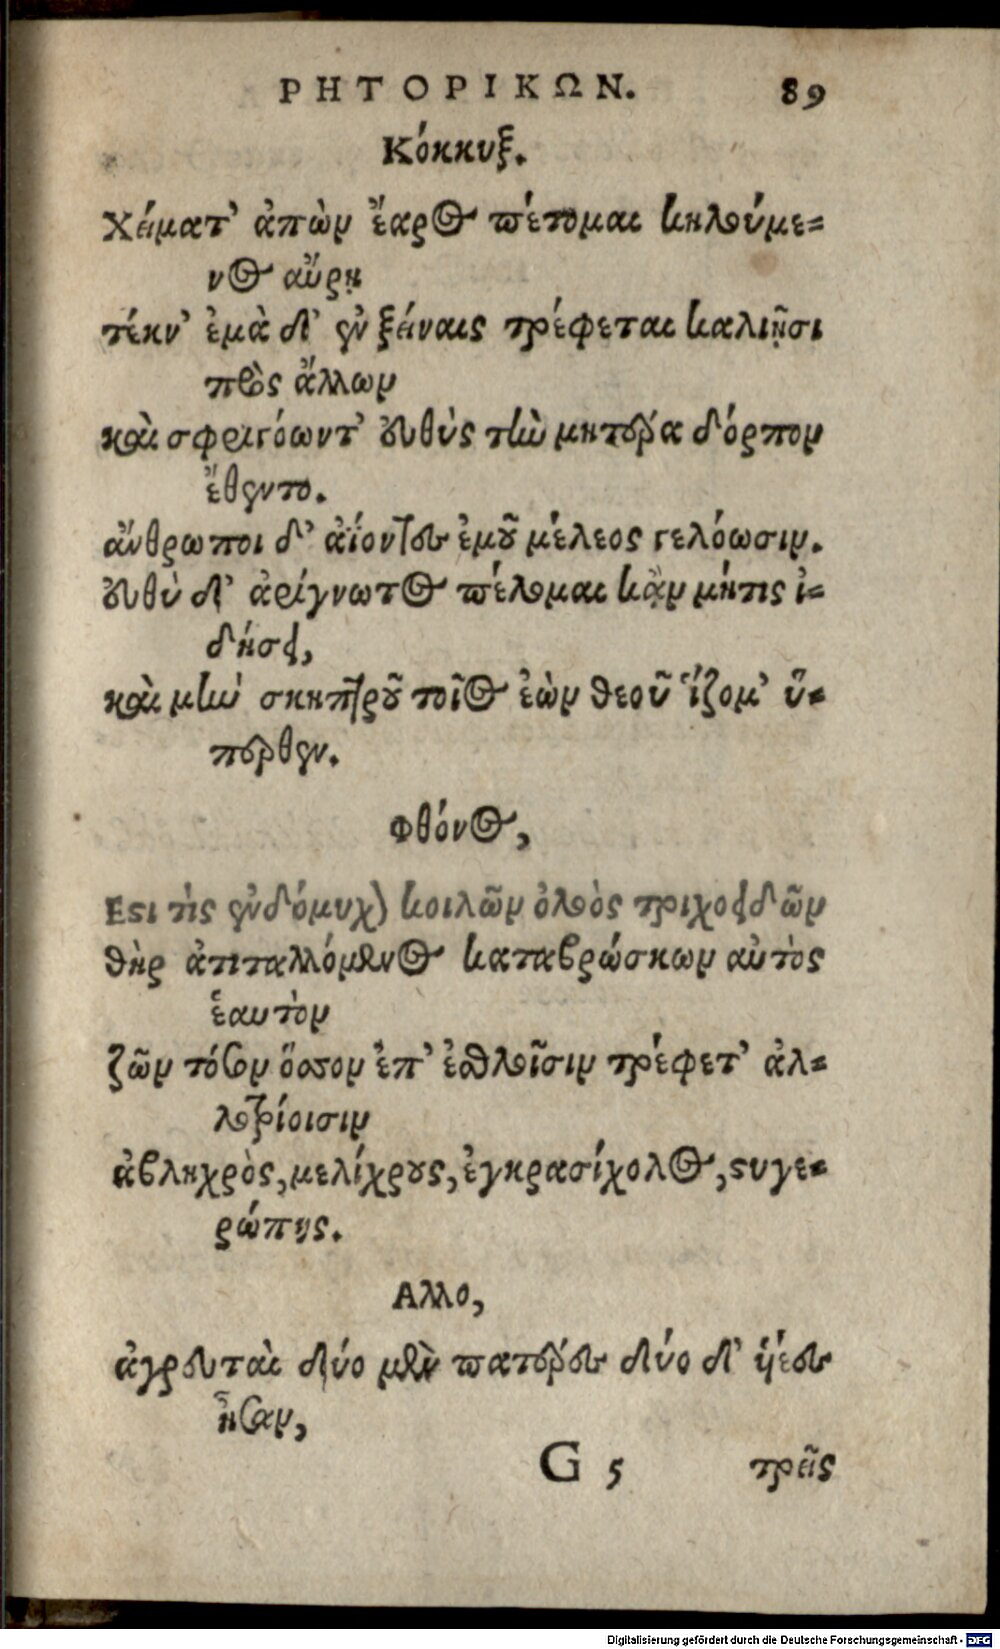 ΡΗΤΟΡΙΚΩΝ. 89
Κόκκυξ.
Χείματ’ ἀπὼν ἔαρος πέτομαι κηλούμε-
νος αὔρῃ
τέκν’ ἐμὰ δ’ ἐν ξείναις τρέφεται καλιῇσι
πρὸς ἄλλων
καὶ σφριγόωντ’ εὐθὺς τὴν μητέρα δόρπον
ἔθεντο.
ἄνθρωποι δ’ ἀΐοντες ἐμοῦ μέλεος γελόωσιν.
εὐθὺ δ’ ἀρίγνωτος πέλομαι κᾂν μήτις ἰ-
δήσει,
καὶ μὴν σκηπτροῦ τοῖος ἐὼν θεοῦ ἵζομ’ ὕ-
περθεν.
Φθόνος,
Εστι τὶς ἐνδόμυχος κοιλῶν ὀλοὸς τριχοειδῶν
θὴρ ἀτιταλλόμενος καταβρώσκων αὐτὸς
ἑαυτὸν
ζῶν τόσον ὅσσον ἐπ’ ἐσθλοῖσιν τρέφετ’ ἀλ-
λοτρίοισιν
ἀβληχρὸς, μελίχρους, ἐγκρασίχολος, στυγε-
ρώπης.
Αλλο,
ἀγρευταὶ δύο μὲν πατέρες δύο δ’ ἡέες
ἦσαν,
G 5 τρεῖς
Digitalisierung gefördert durch die Deutsche Forschungsgemeinschaft - DFG